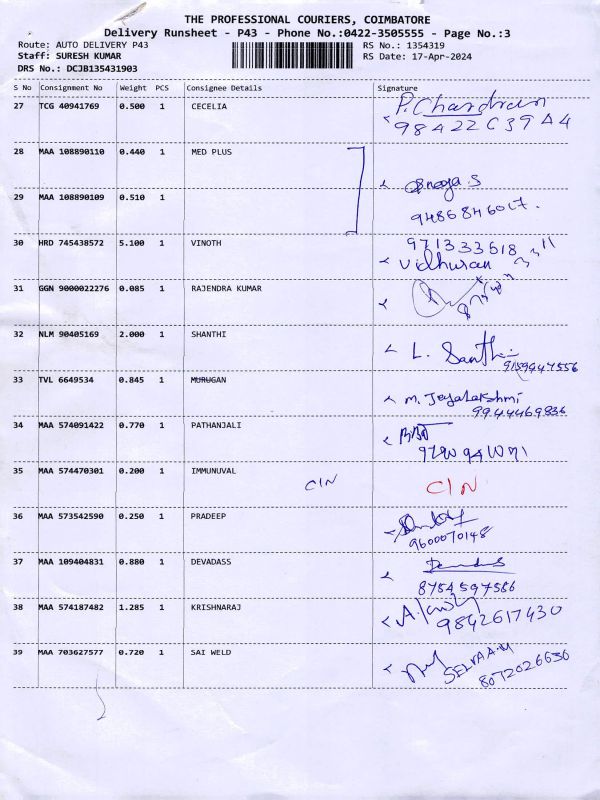 THE PROFESSIONAL COURIERS, COIMBATORE
Delivery Runsheet - P43 - Phone No.:0422-3505555 - Page No.:3
Route: AUTO DELIVERY P43 RS No.: 1354319
Staff: SURESH KUMAR RS Date: 17-Apr-2024
DRS No.: DCJB135431903
S No Consignment No Weight PCS Consignee Details Signature
27 TCG 40941769 0.500 1 CECELIA P. Chandran
28 MAA 108890110 0.440 1 MED PLUS
29 MAA 108890109 0.510 1
9486846017.
30 HRD 745438572 5.100 1 VINOTH
Vidhuran
31 GGN 9000022276 0.085 1 RAJENDRA KUMAR
32 NLM 90405169 2.000 1 SHANTHI L. Santhi
33 TVL 6649534 0.845 1 MURUGAN M. Jeyalakshmi
9944469836
34 MAA 574091422 0.770 1 PATHANJALI
35 MAA 574470301 0.200 1 IMMUNUVAL CIN CIN
36 MAA 573542590 0.250 1 PRADEEP
9600070148
37 MAA 109404831 0.880 1 DEVADASS
8754597586
38 MAA 574187482 1.285 1 KRISHNARAJ
9842617430
39 MAA 703627577 0.720 1 SAI WELD
8072026630